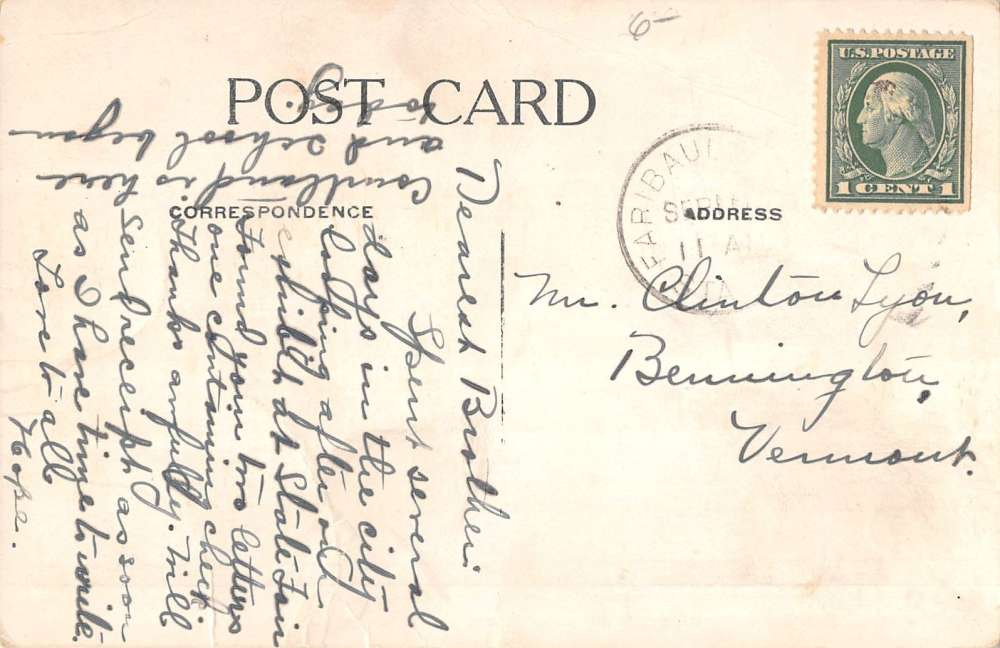 6-
POST CARD
U.S. POSTAGE
1 CENT 1
FARIBAU
SEP
11 A
CORRESPONDENCE
ADDRESS
Mr. Clinton Lyon,
Bennington,
Vermont.
Dearest Brother:
Spent several
days in the city
looking after our
exhibit at State Fair
Found your two letters
one containing check
Thanks awfully. Will
send receipt as soon
as I have time to write.
Love to all
Hope.
Courtland is here
and school began
today.